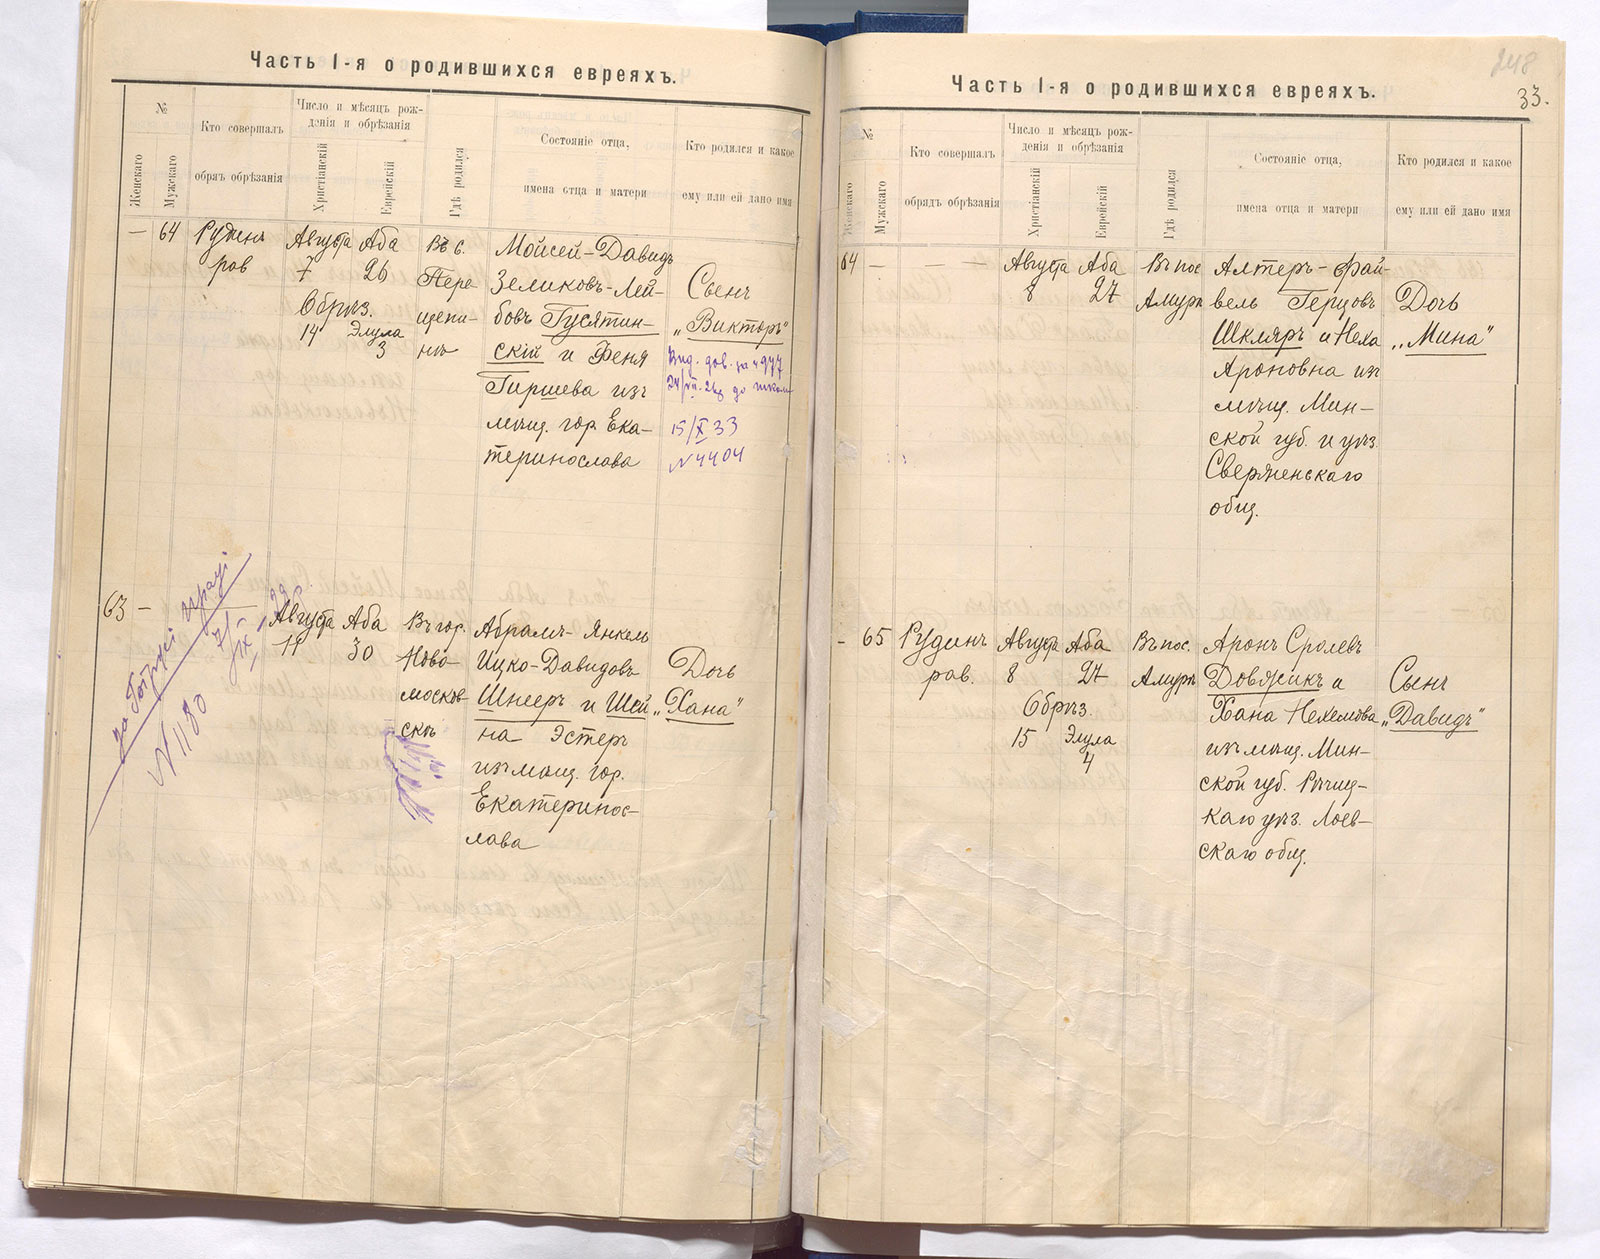 Часть I-я о родившихся евреяхъ.
№
Женскаго
Мужскаго
Кто совершалъ
обрядъ обрѣзанія
Число и мѣсяцъ рож-
денія и обрѣзанія
Христіанскій
Еврейскій
Гдѣ родился
Состояніе отца,
имена отца и матери
Кто родился и какое
ему или ей дано имя
— 64
Рудинъ
рав
Августа
7
Обрѣз.
14
Аба
26
Элула
3
Въ с.
Пере
щепи-
нѣ
Мойсей-Давидъ
Зеликовъ-Лей-
бовъ Гусятин-
скій и Феня
Гиршева изъ
мѣщ. гор. Ека-
теринослава
Сынъ
„Викторъ"
15/X 33
N 4404
63 —
N 1180
Августа
11
Аба
30
Въ гор.
Ново-
москов-
скѣ
Абрамъ-Янкель
Ицко-Давидовъ
Шнееръ и Шей
на Эстеръ
изъ мѣщ. гор.
Екатеринос-
лава
Дочь
„Хана"
Часть I-я о родившихся евреяхъ.
248
33.
№
Женскаго
Мужскаго
Кто совершалъ
обрядъ обрѣзанія
Число и мѣсяцъ рож-
денія и обрѣзанія
Христіанскій
Еврейскій
Гдѣ родился
Состояніе отца,
имена отца и матери
Кто родился и какое
ему или ей дано имя
64 — — —
Августа
8
Аба
27
Въ пос
Амурѣ
Алтеръ-Фай-
вель Герцовъ
Шкляръ и Неха
Ароновна из
мѣщ. Мин-
ской губ. и уѣз.
Сверженскаго
общ.
Дочь
„Мина"
- 65
Рудинъ
рав.
Августа
8
Обрѣз.
15
Аба
27
Элула
4
Въ пос.
Амурѣ
Аронъ Сролевъ
Довжикъ и
Хана Нехемьева
изъ мѣщ. Мин-
ской губ. Рѣчиц-
каго уѣз. Лоев-
скаго общ.
Сынъ
„Давидъ"